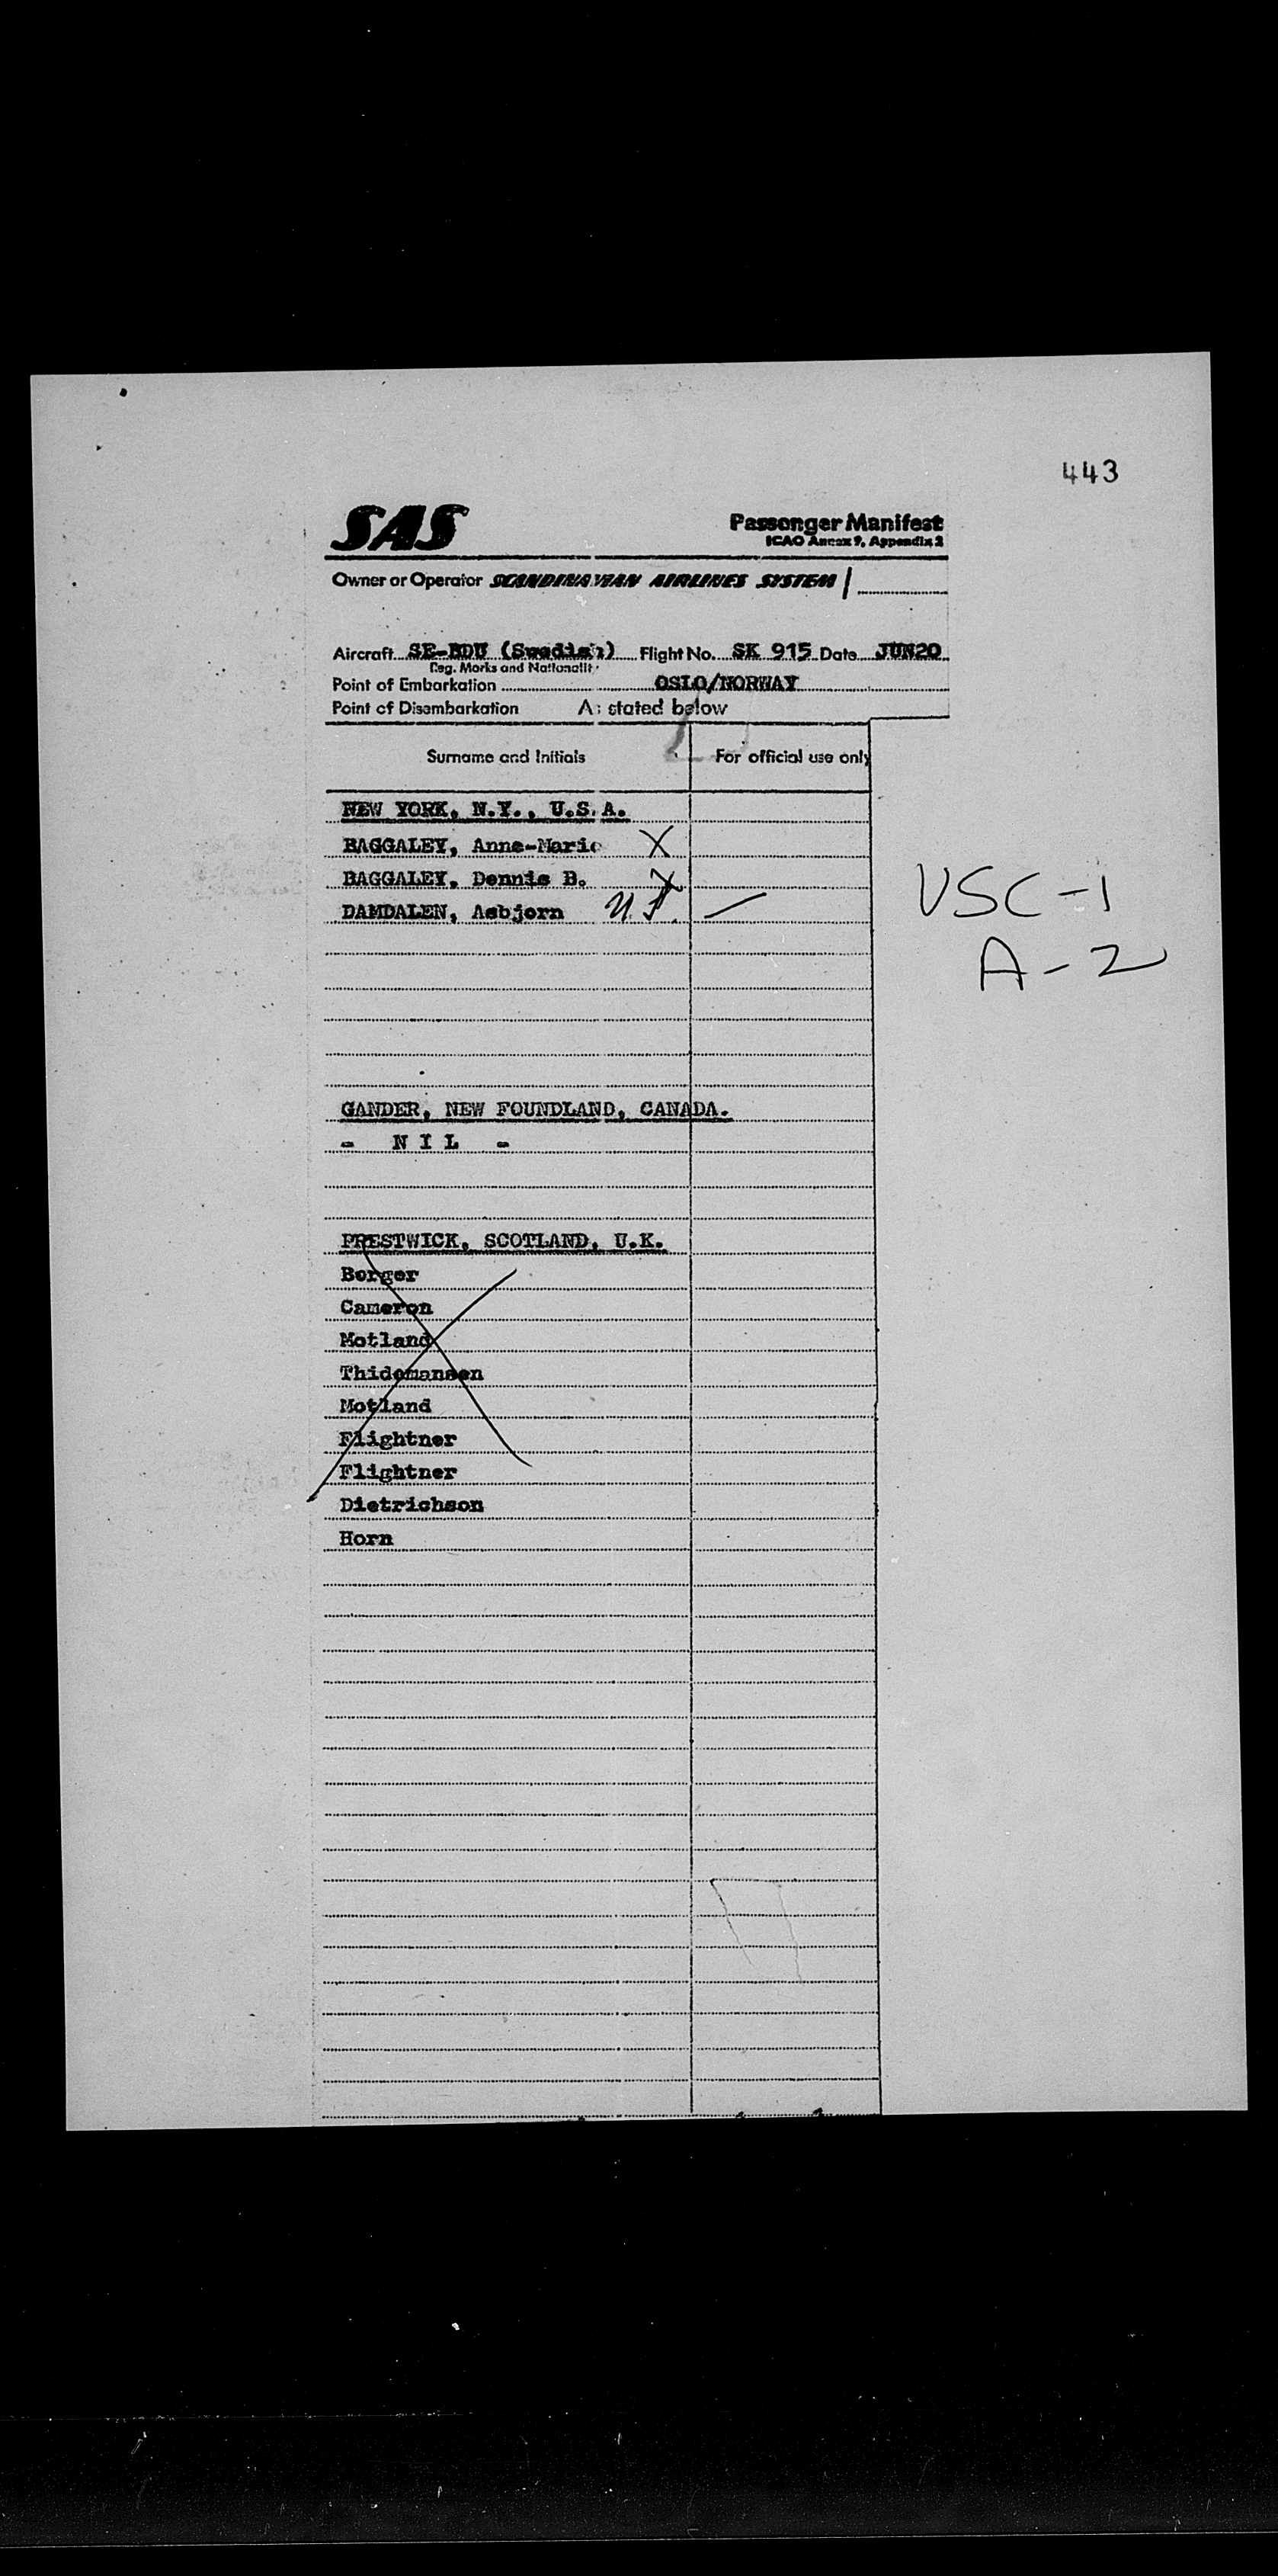 443
SAS
Passenger Manifest
ICAO Annex 9, Appendix 2
Owner or Operator SCANDINAVIAN AIRLINES SYSTEM
Aircraft SE-BDU (Swedish) Flight No. SK 915 Date JUN20
Reg. Marks and Nationality
Point of Embarkation OSLO/NORWAY
Point of Disembarkation As stated below
Surname and Initials For official use only
NEW YORK, N.Y., U.S.A.
BAGGALEY, Anne-Marie X
BAGGALEY, Dennis B. X
DAMDALEN, Asbjorn
VSC-1
A-2
GANDER, NEW FOUNDLAND, CANADA.
- N I L -
PRESTWICK, SCOTLAND, U.K.
Borger
Cameron
Motland
Thidemansen
Motland
Flightner
Flightner
Dietrichson
Horn